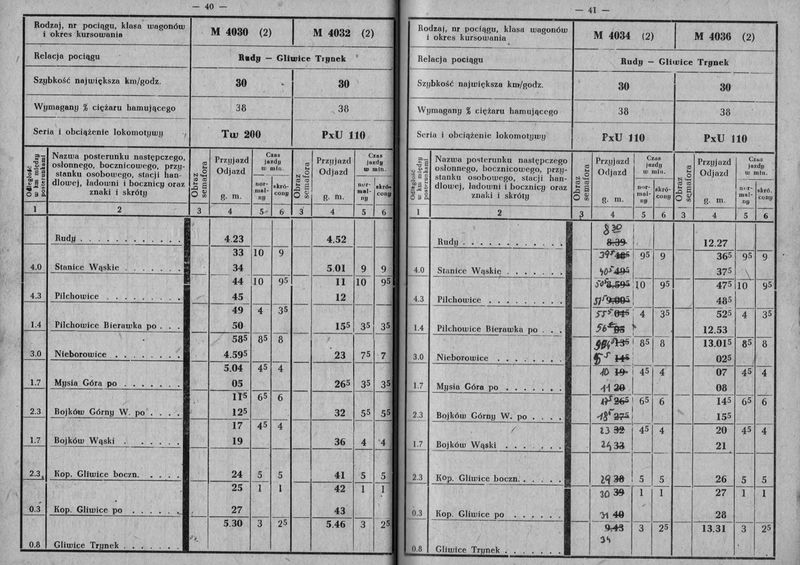 — 40 —
Rodzaj, nr pociągu, klasa wagonów i okres kursowania M 4030 (2) M 4032 (2)
Relacja pociągu Rudy — Gliwice Trynek
Szybkość największa km/godz. 30 30
Wymagany % ciężaru hamującego 38 38
Seria i obciążenie lokomotywy Tw 200 PxU 110
Odległość w km między posterunkami
Nazwa posterunku następczego, osłonnego, bocznicowego, przystanku osobowego, stacji handlowej, ładowni i bocznicy oraz znaki i skróty
Obraz semafora Przyjazd Odjazd g. m. Czas jazdy w min. normalny skrócony
Obraz semafora Przyjazd Odjazd g. m. Czas jazdy w min. normalny skrócony
1 2 3 4 5 6 3 4 5 6
Rudy 4.23 4.52
33 10 9
4.0 Stanice Wąskie 34 5.01 9 9
44 10 9⁵ 11 10 9⁵
4.3 Pilchowice 45 12
49 4 3⁵
1.4 Pilchowice Bierawka po 50 15⁵ 3⁵ 3⁵
58⁵ 8⁵ 8
3.0 Nieborowice 4.59⁵ 23 7⁵ 7
5.04 4⁵ 4
1.7 Mysia Góra po 05 26⁵ 3⁵ 3⁵
11⁵ 6⁵ 6
2.3 Bojków Górny W. po 12⁵ 32 5⁵ 5⁵
17 4⁵ 4
1.7 Bojków Wąski 19 36 4 4
2.3 Kop. Gliwice boczn. 24 5 5 41 5 5
25 1 1 42 1 1
0.3 Kop. Gliwice po 27 43
5.30 3 2⁵ 5.46 3 2⁵
0.8 Gliwice Trynek
— 41 —
Rodzaj, nr pociągu, klasa wagonów i okres kursowania M 4034 (2) M 4036 (2)
Relacja pociągu Rudy — Gliwice Trynek
Szybkość największa km/godz. 30 30
Wymagany % ciężaru hamującego 38 38
Seria i obciążenie lokomotywy PxU 110 PxU 110
Odległość w km między posterunkami
Nazwa posterunku następczego osłonnego, bocznicowego, przystanku osobowego, stacji handlowej, ładowni i bocznicy oraz znaki i skróty
Obraz semafora Przyjazd Odjazd g. m. Czas jazdy w min. normalny skrócony
Obraz semafora Przyjazd Odjazd g. m. Czas jazdy w min. normalny skrócony
1 2 3 4 5 6 3 4 5 6
8 30
Rudy 8.39 12.27
39⁵ 9⁵ 9 36⁵ 9⁵ 9
4.0 Stanice Wąskie 40⁵ 49⁵ 37⁵
8.59⁵ 10 9⁵ 47⁵ 10 9⁵
4.3 Pilchowice 51⁵ 9.00⁵ 48⁵
55⁵ 04⁵ 4 3⁵ 52⁵ 4 3⁵
1.4 Pilchowice Bierawka po 56⁵ 12.53
13⁵ 8⁵ 8 13.01⁵ 8⁵ 8
3.0 Nieborowice 14⁵ 02⁵
10 19 4⁵ 4 07 4⁵ 4
1.7 Mysia Góra po 11 20 08
17⁵ 26⁵ 6⁵ 6 14⁵ 6⁵ 6
2.3 Bojków Górny W. po 18⁵ 27⁵ 15⁵
23 32 4⁵ 4 20 4⁵ 4
1.7 Bojków Wąski 24 33 21
2.3 Kop. Gliwice boczn. 29 38 5 5 26 5 5
30 39 1 1 27 1 1
0.3 Kop. Gliwice po 31 40 28
9.43 3 2⁵ 13.31 3 2⁵
34
0.8 Gliwice Trynek